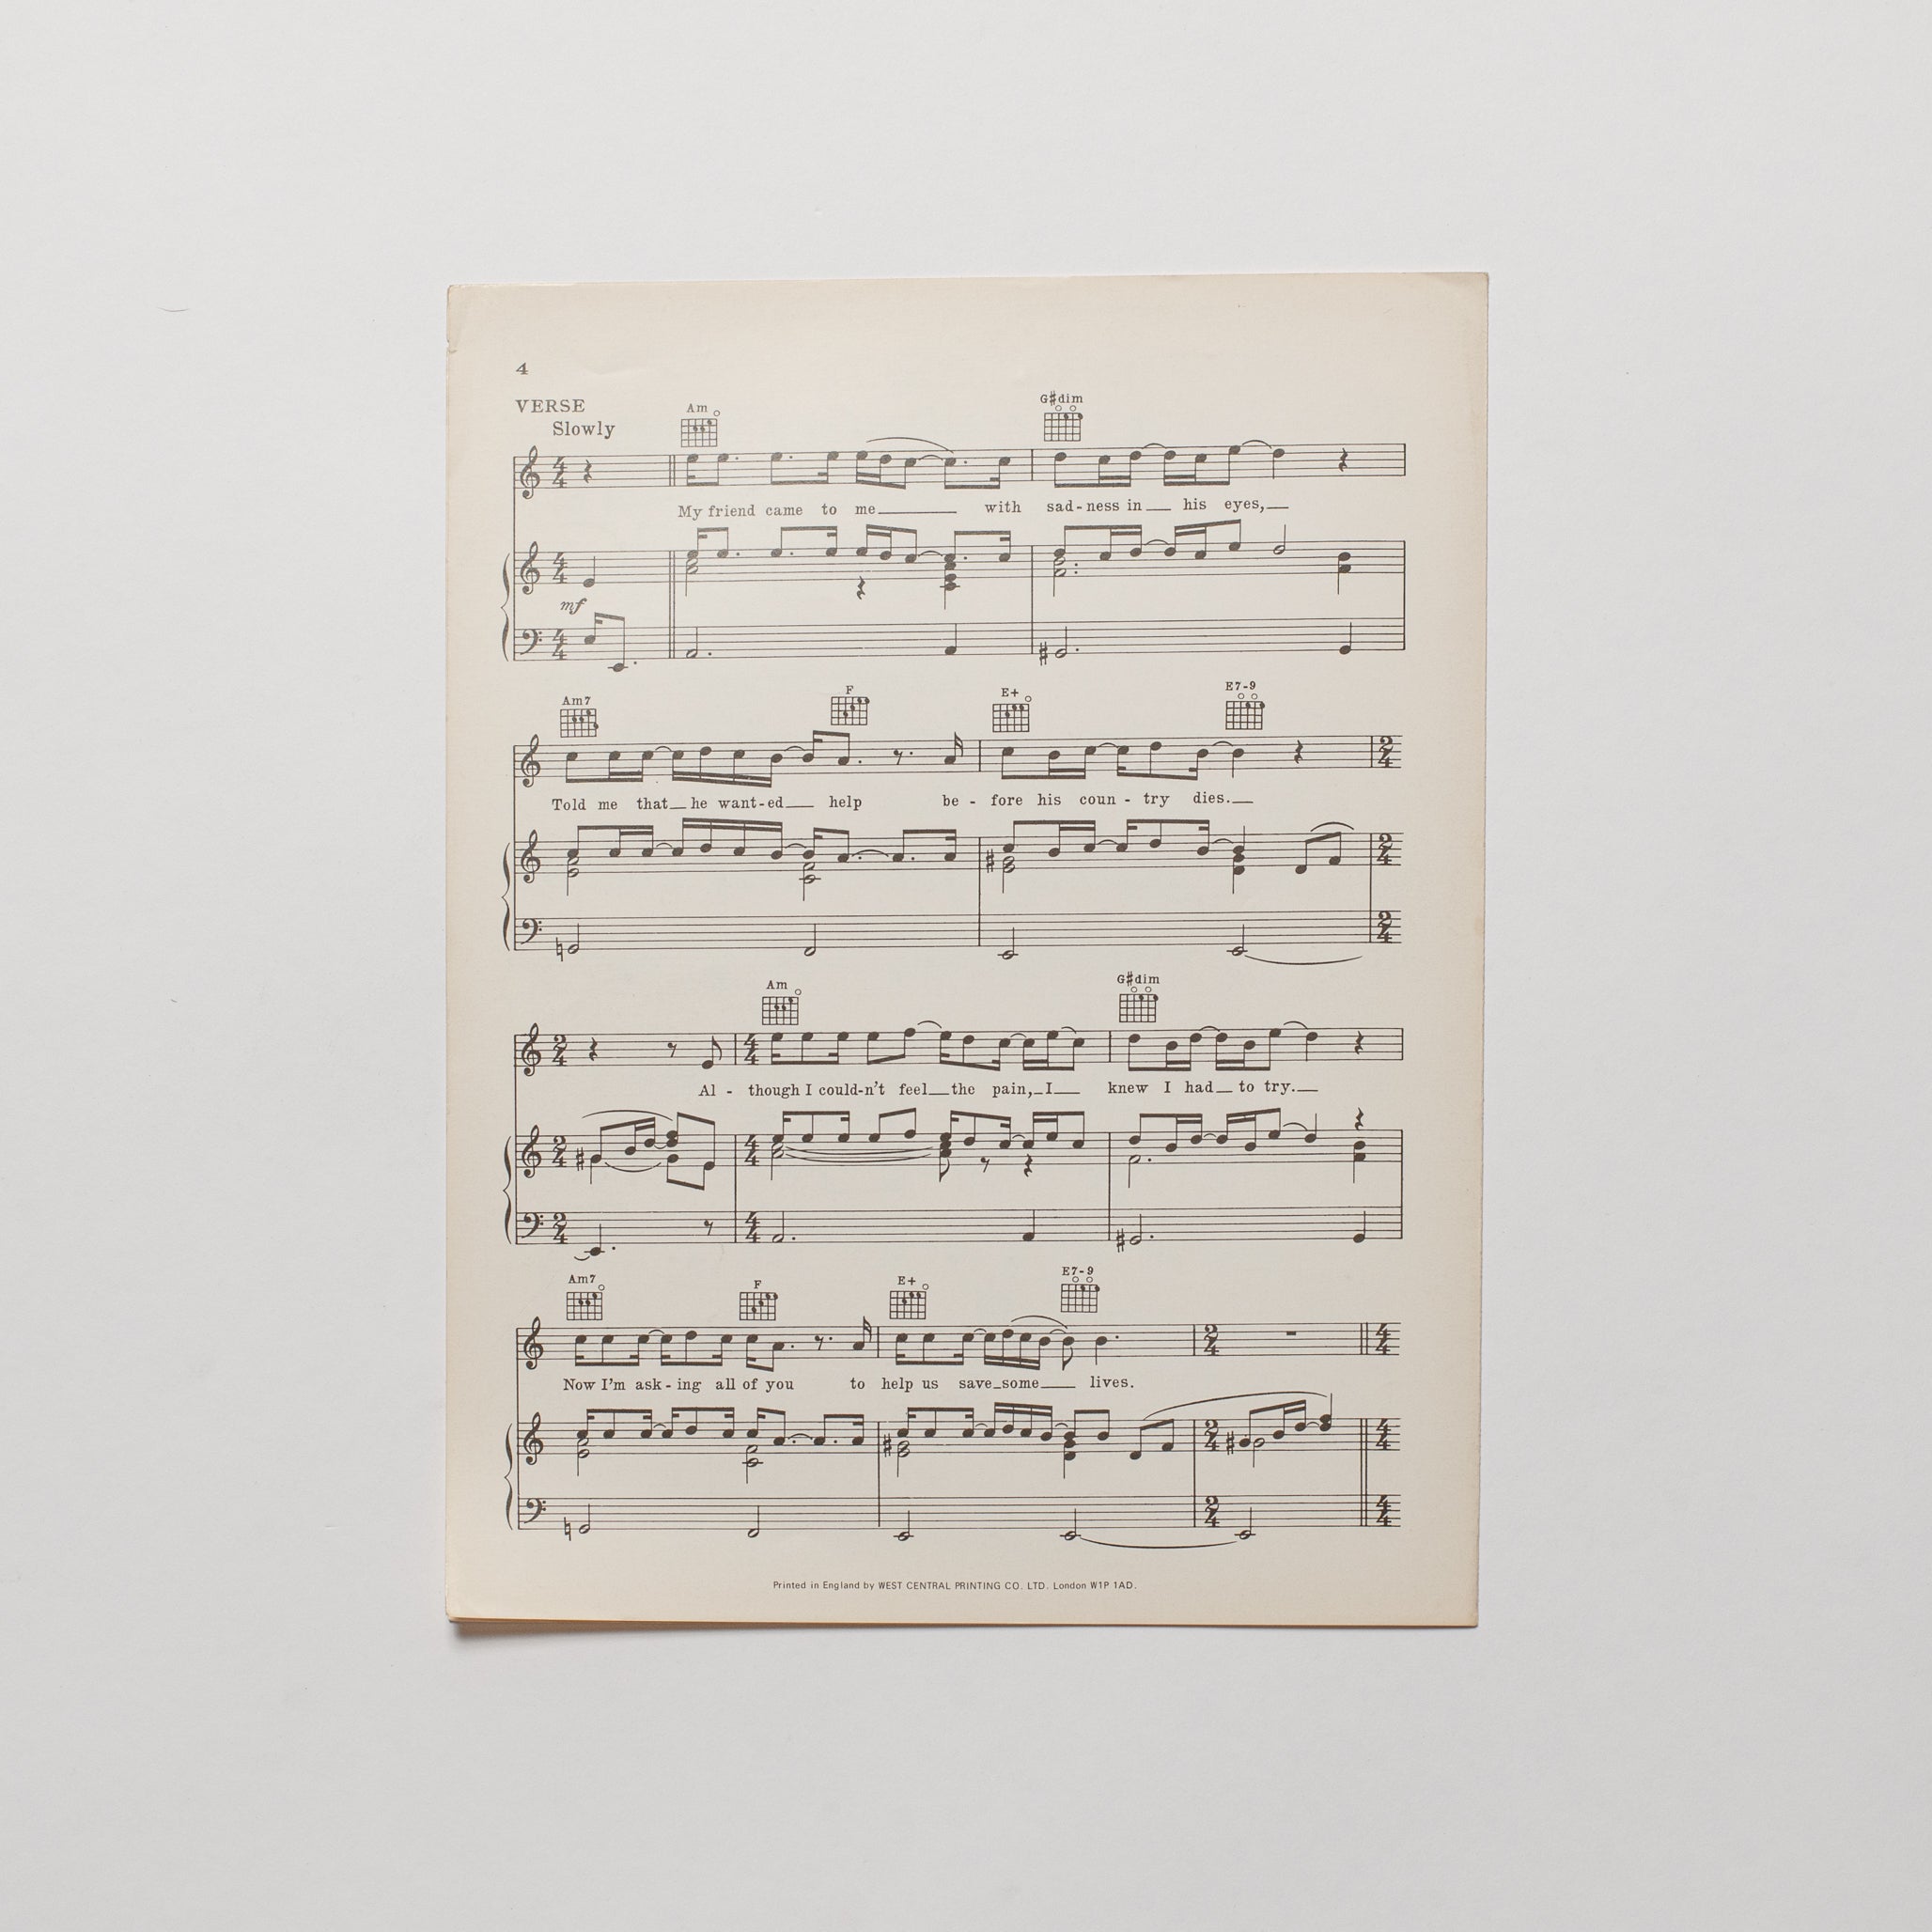 4
VERSE
Slowly
Am G♯dim
4/4
My friend came to me with sad-ness in his eyes,
4/4
mf
4/4
Am7 F E+ E7-9
2/4
Told me that he want-ed help be-fore his coun-try dies.
2/4
2/4
Am G♯dim
2/4 4/4
Al-though I could-n't feel the pain, I knew I had to try.
2/4 4/4
2/4 4/4
Am7 F E+ E7-9
2/4 4/4
Now I'm ask-ing all of you to help us save some lives.
2/4 4/4
2/4 4/4
Printed in England by WEST CENTRAL PRINTING CO. LTD. London W1P 1AD.